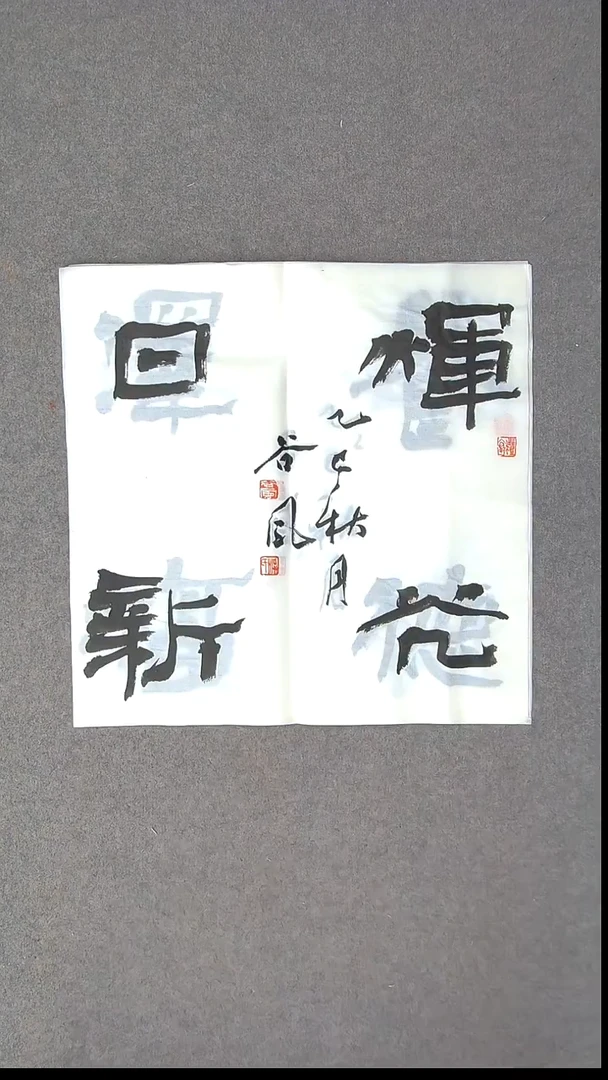 煇光
日新
乙巳秋月
谷风